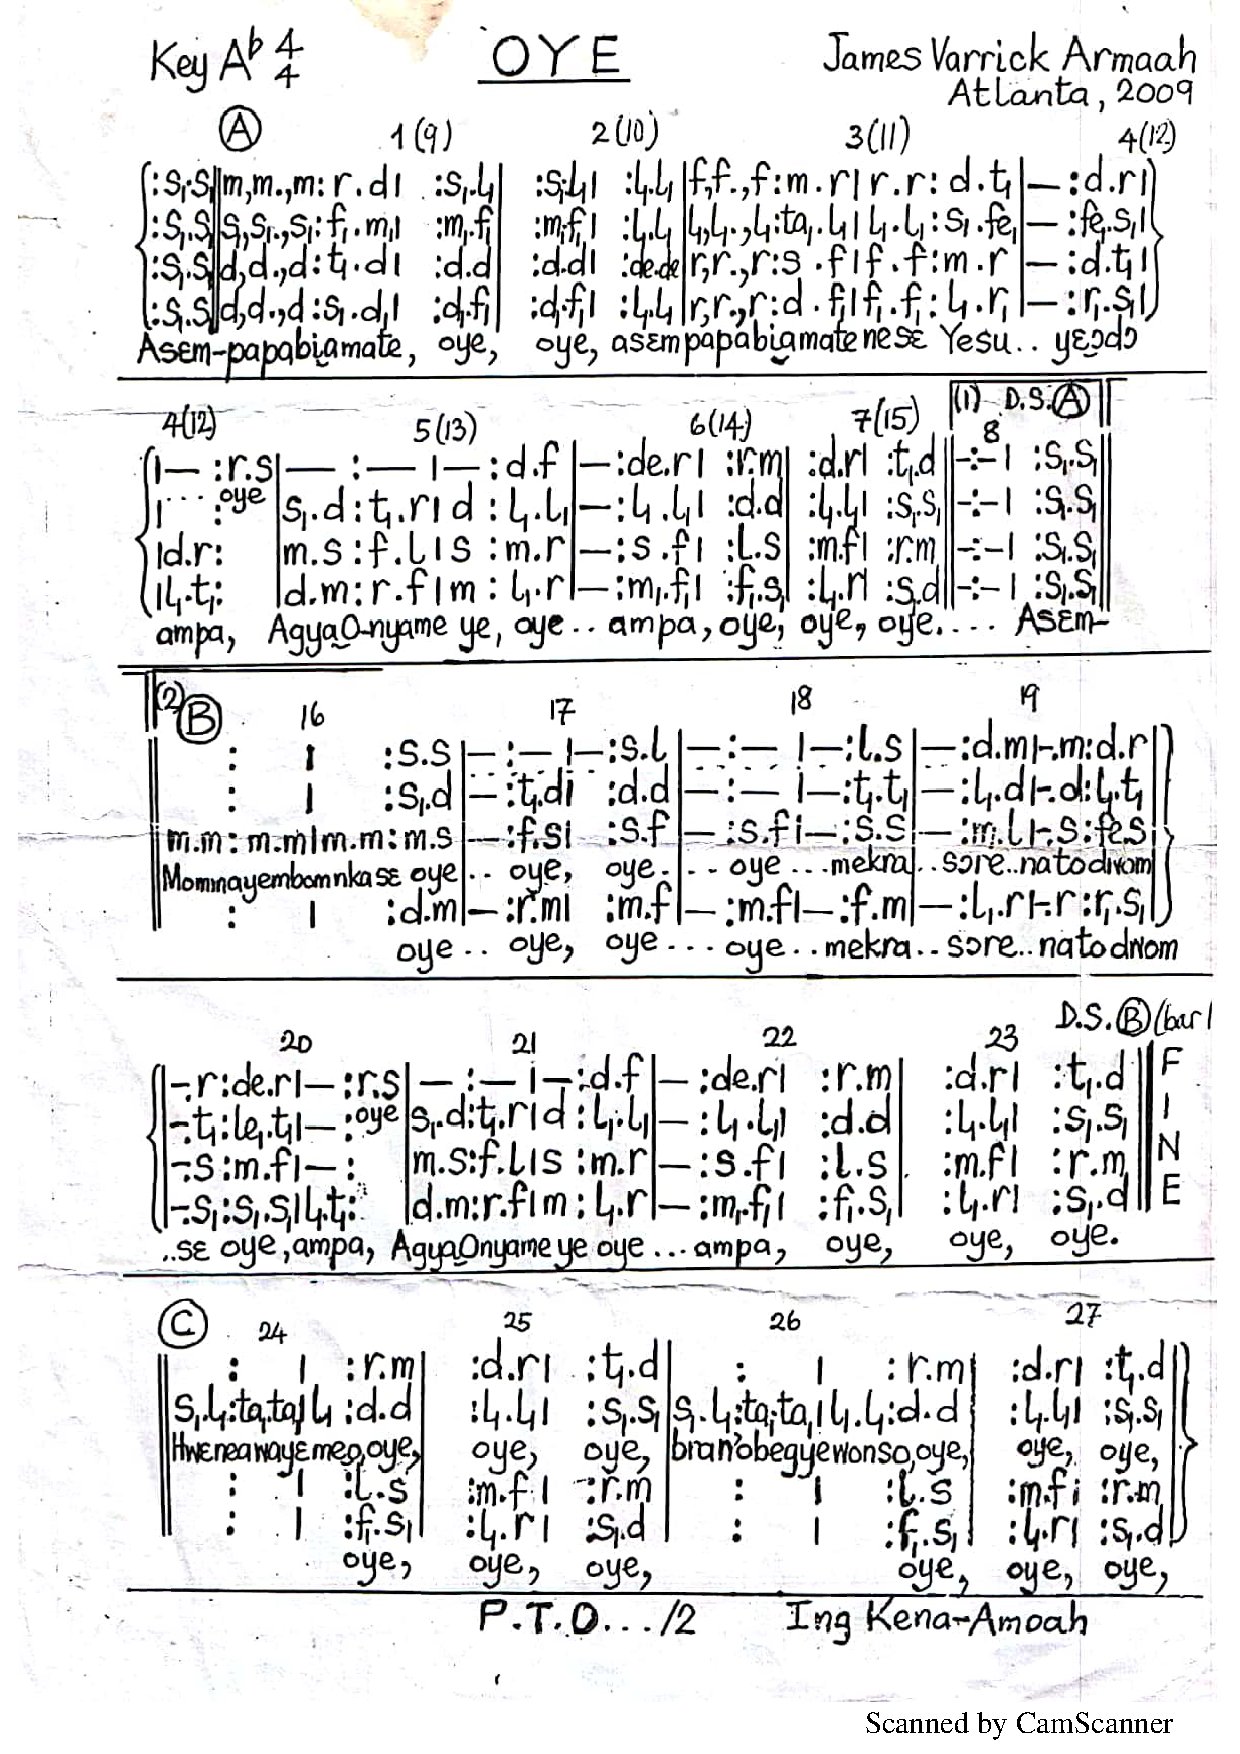 Key A♭ 4/4 OYE James Varrick Armaah
Atlanta, 2009
Ⓐ 1(9) 2(10) 3(11) 4(12)
:s₁.s₁‖m,m.,m: r.d| :s₁.l₁| :s₁.l₁| :l₁.l₁|f,f.,f:m.r|r.r: d.t₁|—:d.r|
:s₁.s₁‖s₁,s₁.,s₁:f₁.m₁| :m₁.f₁| :m₁.f₁| :l₁.l₁|l₁,l₁.,l₁:ta₁.l₁|l₁.l₁:s₁.fe₁|—:fe₁.s₁|
:s₁.s₁‖d,d.,d:t₁.d| :d.d| :d.d| :de.de|r,r.,r:s.f|f.f:m.r|—:d.t₁|
:s₁.s₁‖d,d.,d:s₁.d₁| :d₁.f₁| :d₁.f₁| :l₁.l₁|r,r.,r:d.f₁|f₁.f₁:l₁.r₁|—:r₁.s₁|
Asɛm-papabiamate, oye, oye, asɛmpapabiamate nesɛ Yesu.. yɛɔdɔ
4(12) 5(13) 6(14) 7(15) (1) 8 D.S.Ⓐ
|— :r.s|— :— |— :d.f|—:de.r| :r.m| :d.r| :t₁.d‖-:-| :s₁.s₁‖
|... :oye |s₁.d:t₁.r|d :l₁.l₁|—:l₁.l₁| :d.d| :l₁.l₁| :s₁.s₁‖-:-| :s₁.s₁‖
|d.r: |m.s:f.l|s :m.r|—:s.f| :l.s| :m.f| :r.m‖-:-| :s₁.s₁‖
|l₁.t₁: |d.m:r.f|m :l₁.r|—:m₁.f₁| :f₁.s₁| :l₁.r| :s₁.d‖-:-| :s₁.s₁‖
ampa, AgyaO-nyame ye, oye.. ampa, oye, oye, oye.... Asɛm-
(2) Ⓑ 16 17 18 19
: | :s.s|—:—|—:s.l|—:— |—:l.s|—:d.m|-.m:d.r|
: | :s₁.d|—:t₁.d| :d.d|—:— |—:t₁.t₁|—:l₁.d|-.d:l₁.t₁|
m.m: m.m|m.m: m.s|—:f.s| :s.f|—:s.f|—:s.s|—:m.l|-.s:fe.s|
Mominayembomnkasɛ oye.. oye, oye... oye...mekra..sɔre..natodwom
: | :d.m|—:r.m| :m.f|—:m.f|—:f.m|—:l₁.r|-.r:r₁.s₁|
oye.. oye, oye... oye..mekra..sɔre..natodwom
20 21 22 23 D.S.Ⓑ(bar 1
|-.r:de.r|—:r.s|—:—|—:d.f|—:de.r| :r.m| :d.r| :t₁.d‖ F
|-.t₁:le₁.t₁|—:oye |s₁.d:t₁.r|d :l₁.l₁|—:l₁.l₁| :d.d| :l₁.l₁| :s₁.s₁‖ I
|-.s:m.f|—: |m.s:f.l|s :m.r|—:s.f| :l.s| :m.f| :r.m‖ N
|-.s₁:s₁.s₁|l₁.t₁: |d.m:r.f|m :l₁.r|—:m₁.f₁| :f₁.s₁| :l₁.r| :s₁.d‖ E
..sɛ oye, ampa, AgyaOnyame ye oye...ampa, oye, oye, oye.
Ⓒ 24 25 26 27
‖ : | :r.m| :d.r| :t₁.d| : | :r.m| :d.r| :t₁.d‖
s₁.l₁:ta₁.ta₁|l₁ :d.d| :l₁.l₁| :s₁.s₁|s₁.l₁:ta₁.ta₁|l₁.l₁:d.d| :l₁.l₁| :s₁.s₁
Hwɛneawayɛmeo, oye, oye, oye, bran'obegyewonso, oye, oye, oye,
: | :l.s| :m.f| :r.m| : | :l.s| :m.f| :r.m
: | :f₁.s₁| :l₁.r| :s₁.d| : | :f₁.s₁| :l₁.r| :s₁.d
oye, oye, oye, oye, oye, oye,
P.T.O.../2 Ing Kena-Amoah
Scanned by CamScanner